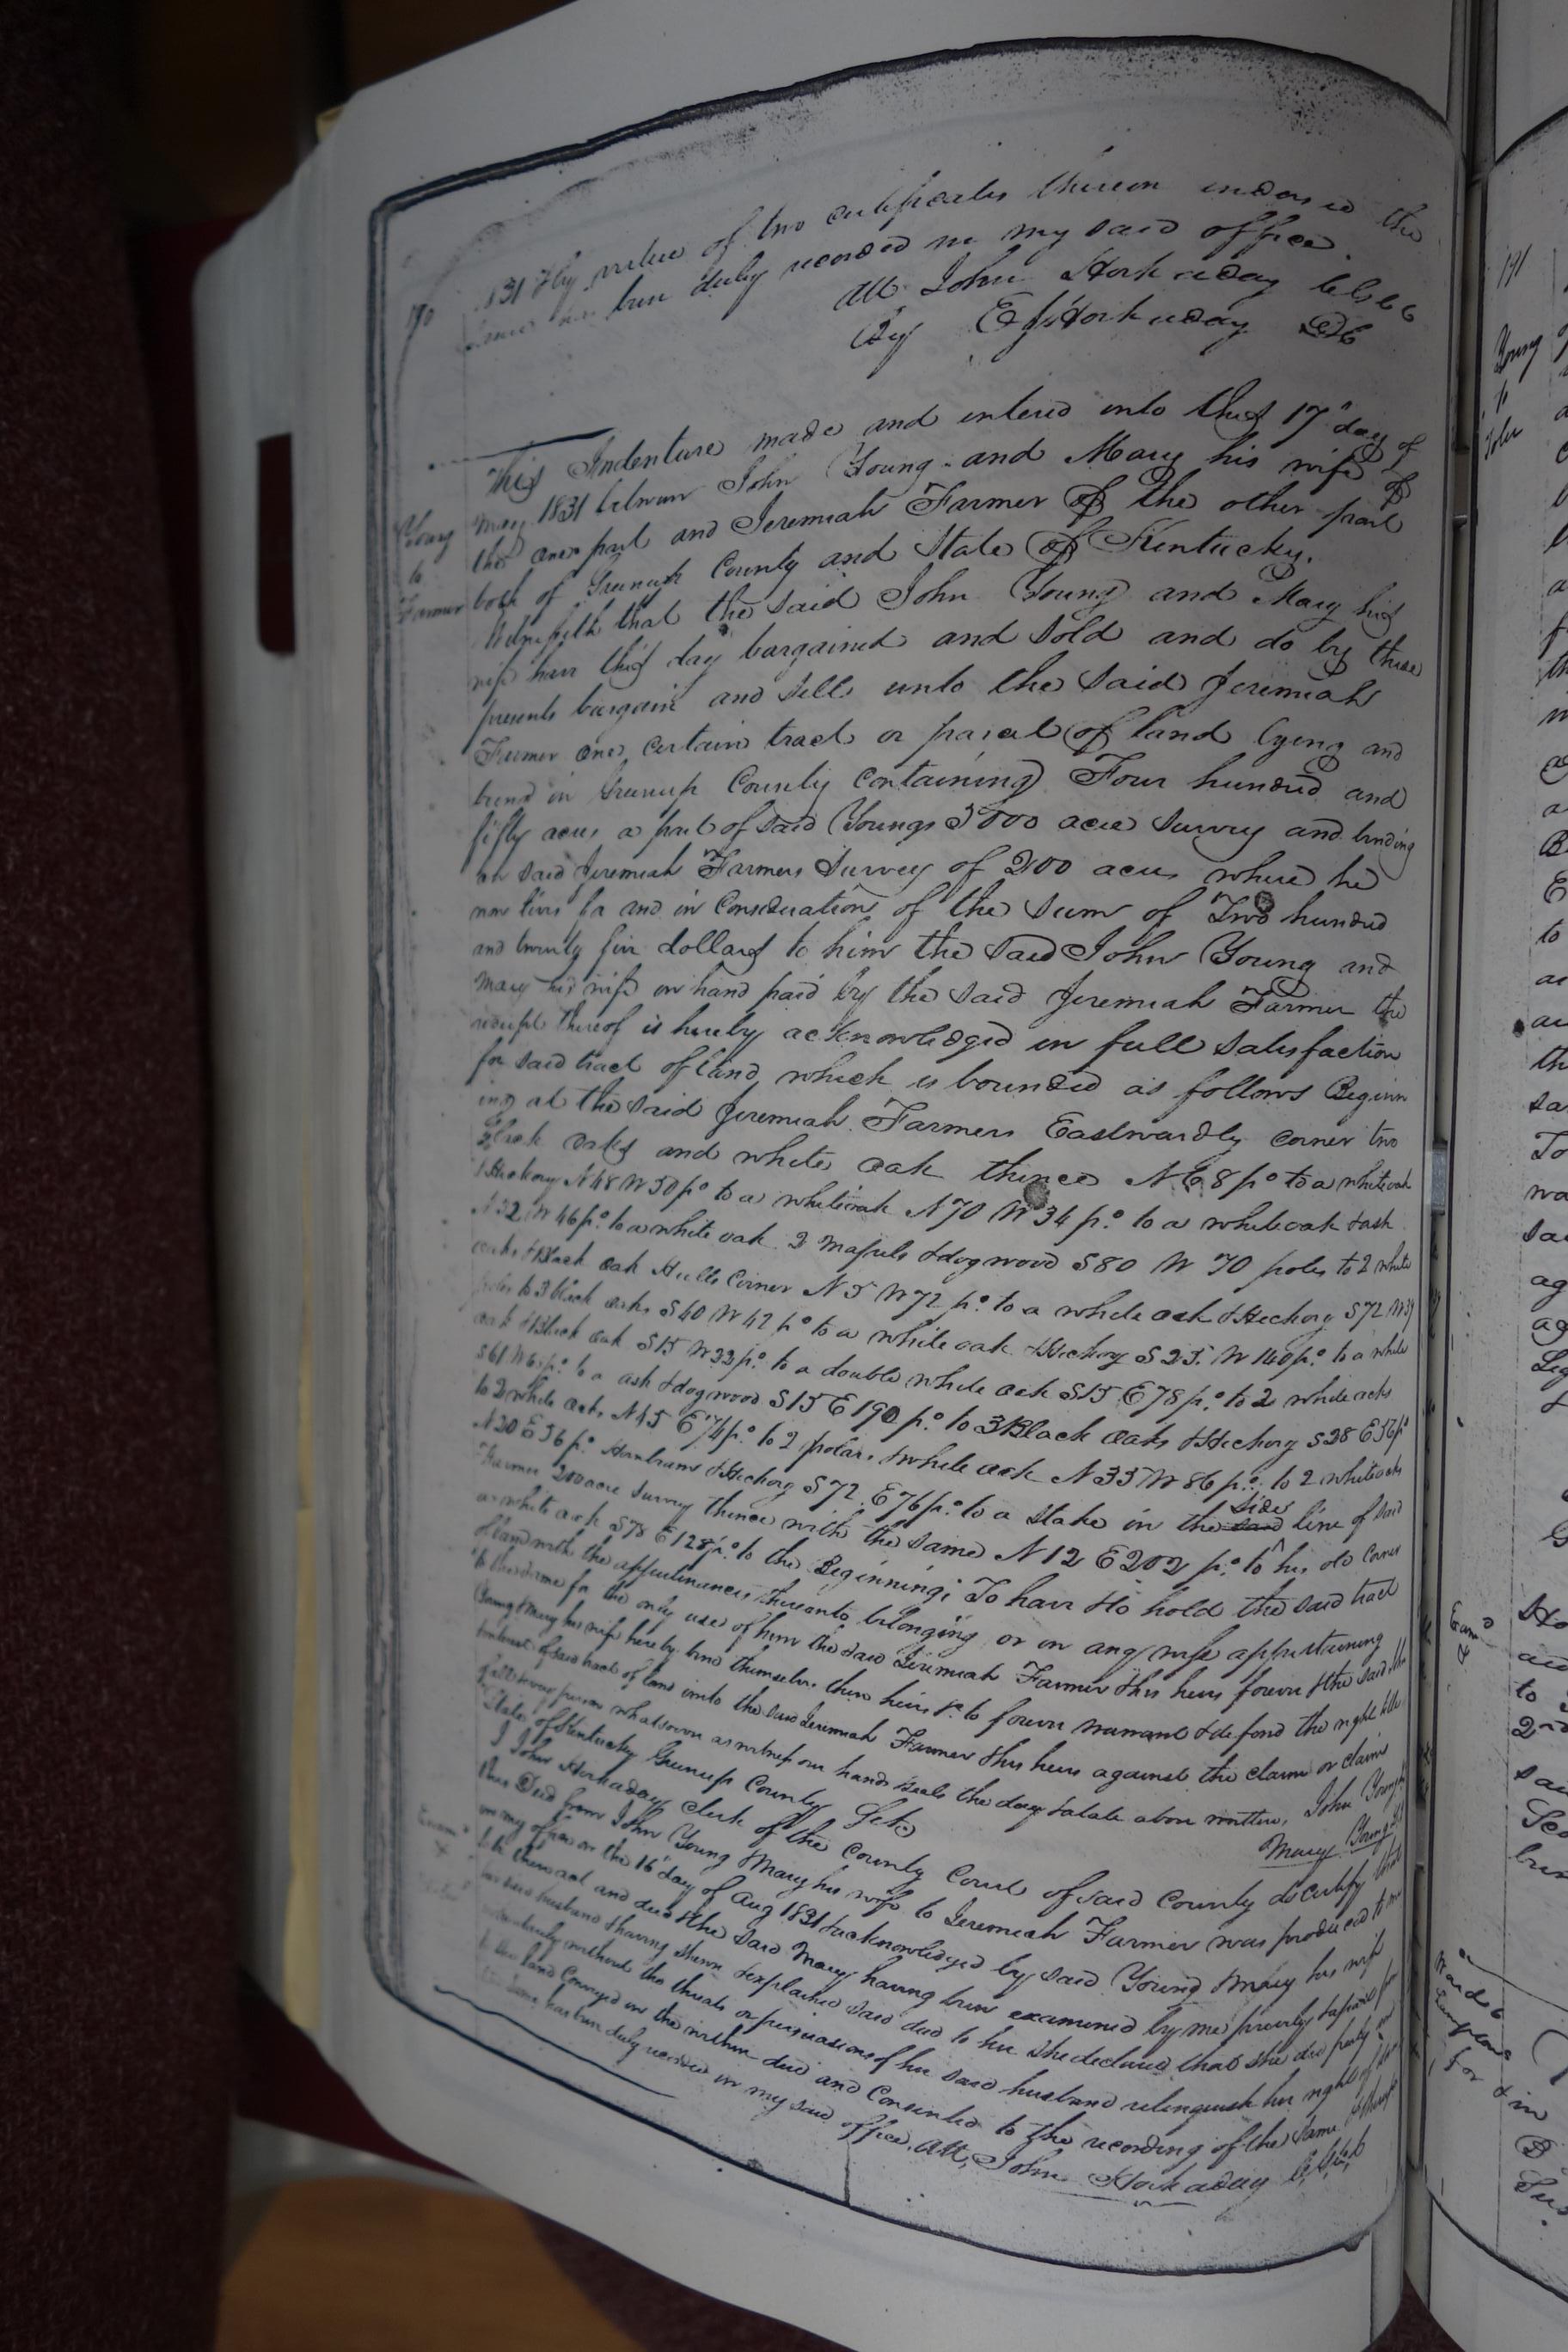 190
1831 & by virtue of two certificates thereon endorsed the
same has been duly recorded in my said office.
Att John Hockaday Clk
By E Hockaday DC
This Indenture made and entered into this 17th day of
Young
to
Farmer
May 1831 between John Young and Mary his wife of
the one part and Jeremiah Farmer of the other part
both of Greenup County and State of Kentucky.
Witnesseth that the said John Young and Mary his
wife have this day bargained and sold and do by these
presents bargain and sell unto the said Jeremiah
Farmer one certain tract or parcel of land lying and
being in Greenup County containing Four hundred and
fifty acres a part of said Youngs acre survey and binding
on said Jeremiah Farmers survey of 200 acres where he
now lives for and in consideration of the sum of Two hundred
and twenty five dollars to him the said John Young and
Mary his wife in hand paid by the said Jeremiah Farmer the
receipt thereof is hereby acknowledged in full satisfaction
for said tract of land which is bounded as follows Beginn
ing at the said Jeremiah Farmers Eastwardly corner two
Black oaks and white oak thence N 68 po to a white oak
& Hickory N 48 W 50 po to a white oak N 70 W 34 po to a white oak & ash
N 32 W 46 po to a white oak 2 mapuls & dogwood S 80 W 70 poles to 2 white
oaks & Black oak Hulls Corner N 5 W 72 po to a white oak & Hickory S 72 W
poles to 3 black oaks S 40 W 42 po to a white oak & Hickory S 25 W 140 po to a white
oak & Black oak S 15 W 22 po to a double white oak S 15 E 78 po to 2 white oaks
S 61 W po to a ash & dogwood S 15 E 190 po to 3 Black oaks & Hickory S 28 E 36 po
to 2 white oaks N 45 E 74 po to 2 polars & white oak N 33 W 86 po to 2 white oaks
N 20 E 36 po Hornbeam & Hickory S 72 E 76 po to a stake in the said side line of said
Farmer 200 acre survey thence with the same N 12 E 202 po to his old corner
a white oak S 78 E 128 po to the Beginning; To have & to hold the said tract
of land with the appurtenances thereonto belonging or in any wise appertaining
to the same for the only use of him the said Jeremiah Farmer & his heirs forever & the said
Young & Mary his wife hereby bind themselves their heirs &c to forever warrant & defend the right title
Interest of said tract of land unto the said Jeremiah Farmer & his heirs against the claim or claims
of all & every person whatsoever as witness our hands & seals the day & date above written, John Young
Mary Young
State of Kentucky Greenup County Sct
I John Hockaday clerk of the County Court of said County do certify that
this Deed from John Young & Mary his wife to Jeremiah Farmer was produced to me
in my office on the 16th day of Aug 1831 & acknowledged by said Young & Mary his wife
to be their act and deed & the said Mary having been examined by me privily & apart from
her said husband & having shewn & explained said deed to her she declared that she did freely and
voluntarily without the threats or persuasions of her said husband relinquish her right of
to the land conveyed in the within deed and consented to the recording of the same
the same has been duly recorded in my said office. Att, John Hockaday Clk
Exam
191
Young
to
Exam